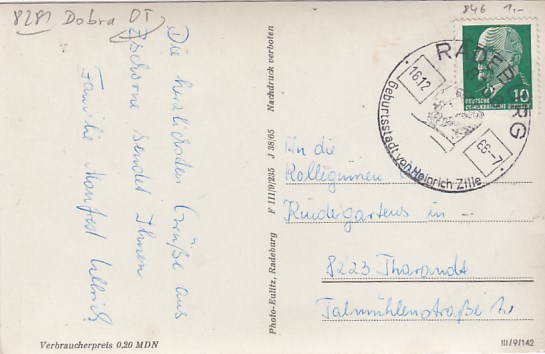 8281 Dobra OT
Zschorna
846 1,-
Die herzlichsten Grüße aus
Zschorna sendet Ihnen
Familie Manfred
Photo-Eulitz, Radeburg F III/9/235 J 38/65 Nachdruck verboten
RADEBURG
16.12
66-7
Geburtsstadt von Heinrich Zille
10
DEUTSCHE
DEMOKRATISCHE REPUBLIK
An die
Kolleginnen
Kindergartens in –
8223 Tharandt
Talmühlenstraße
Verbraucherpreis 0,20 MDN
III/9/142